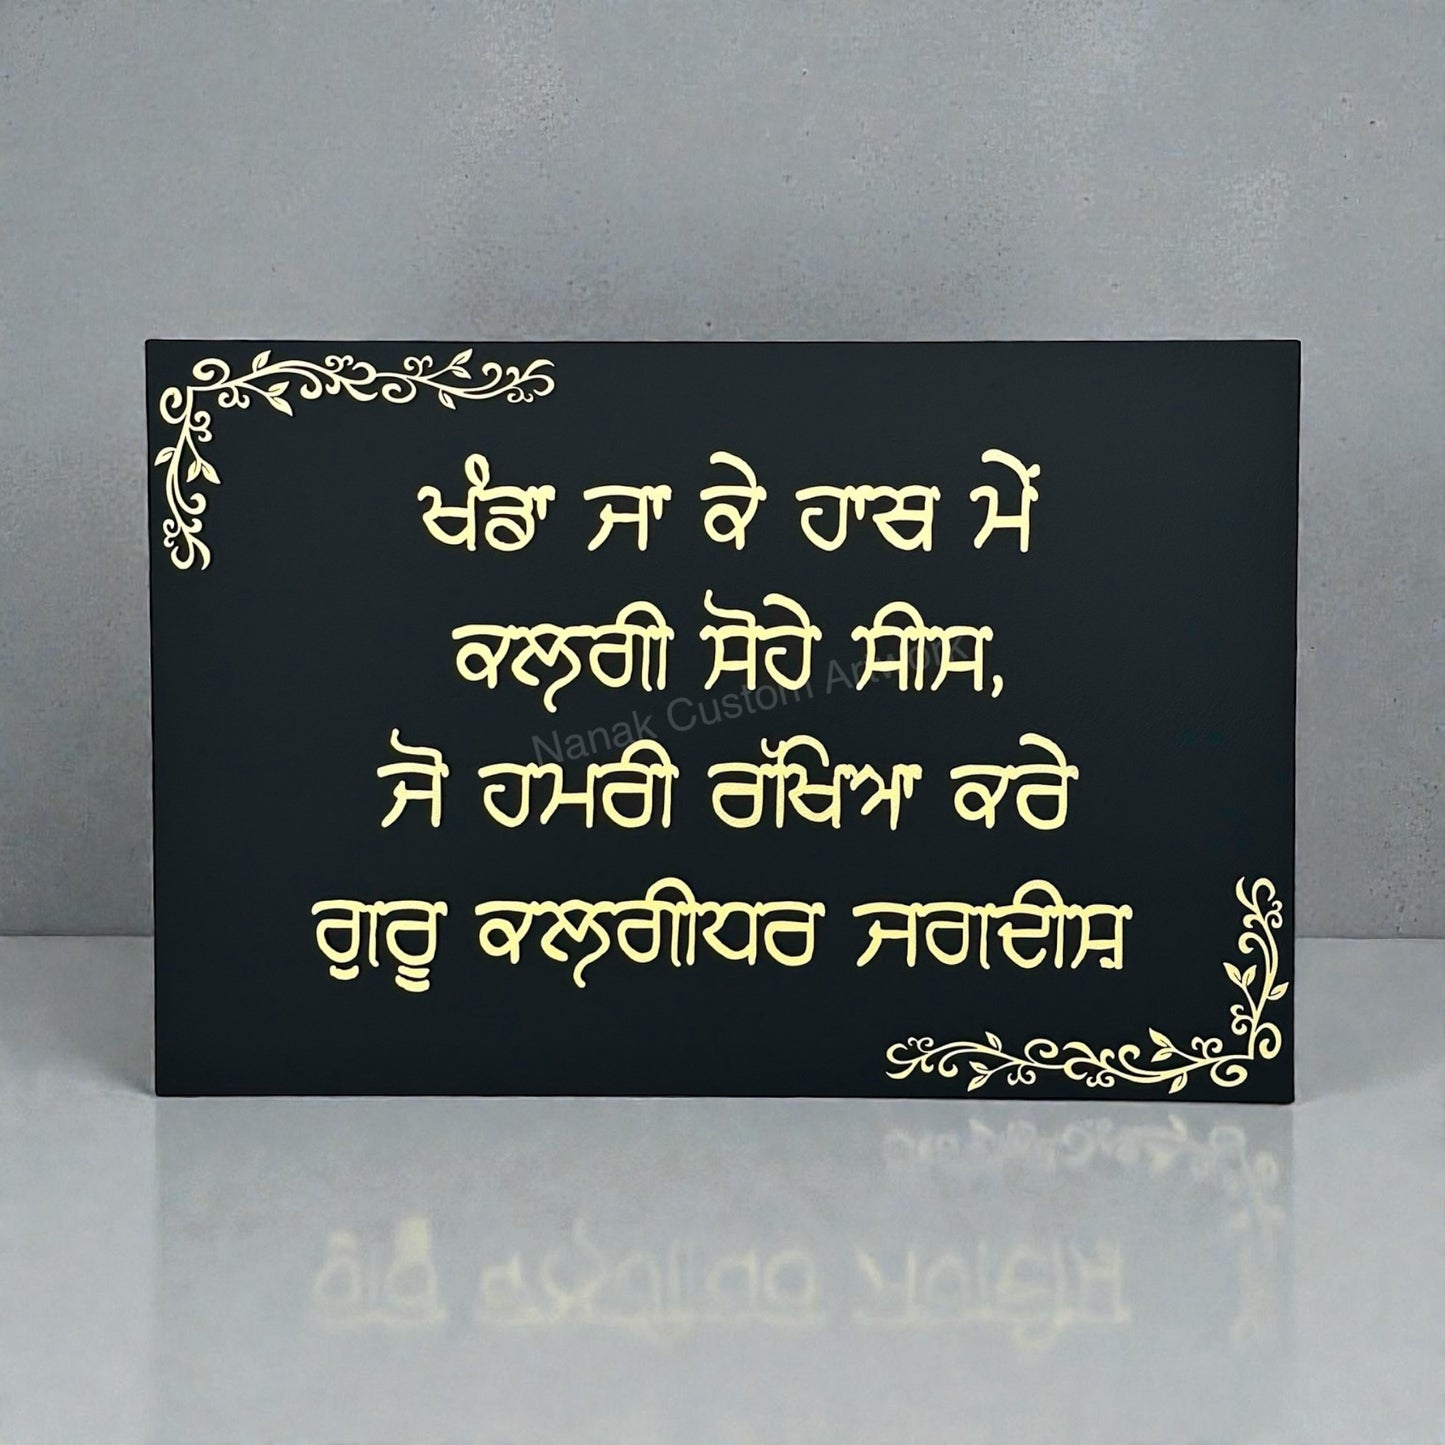 ਖੰਡਾ ਜਾ ਕੇ ਹਾਥ ਮੇਂ
ਕਲਗੀ ਸੋਹੇ ਸੀਸ,
ਜੋ ਹਮਰੀ ਰੱਖਿਆ ਕਰੇ
ਗੁਰੂ ਕਲਗੀਧਰ ਜਗਦੀਸ਼
Nanak Custom Artwork